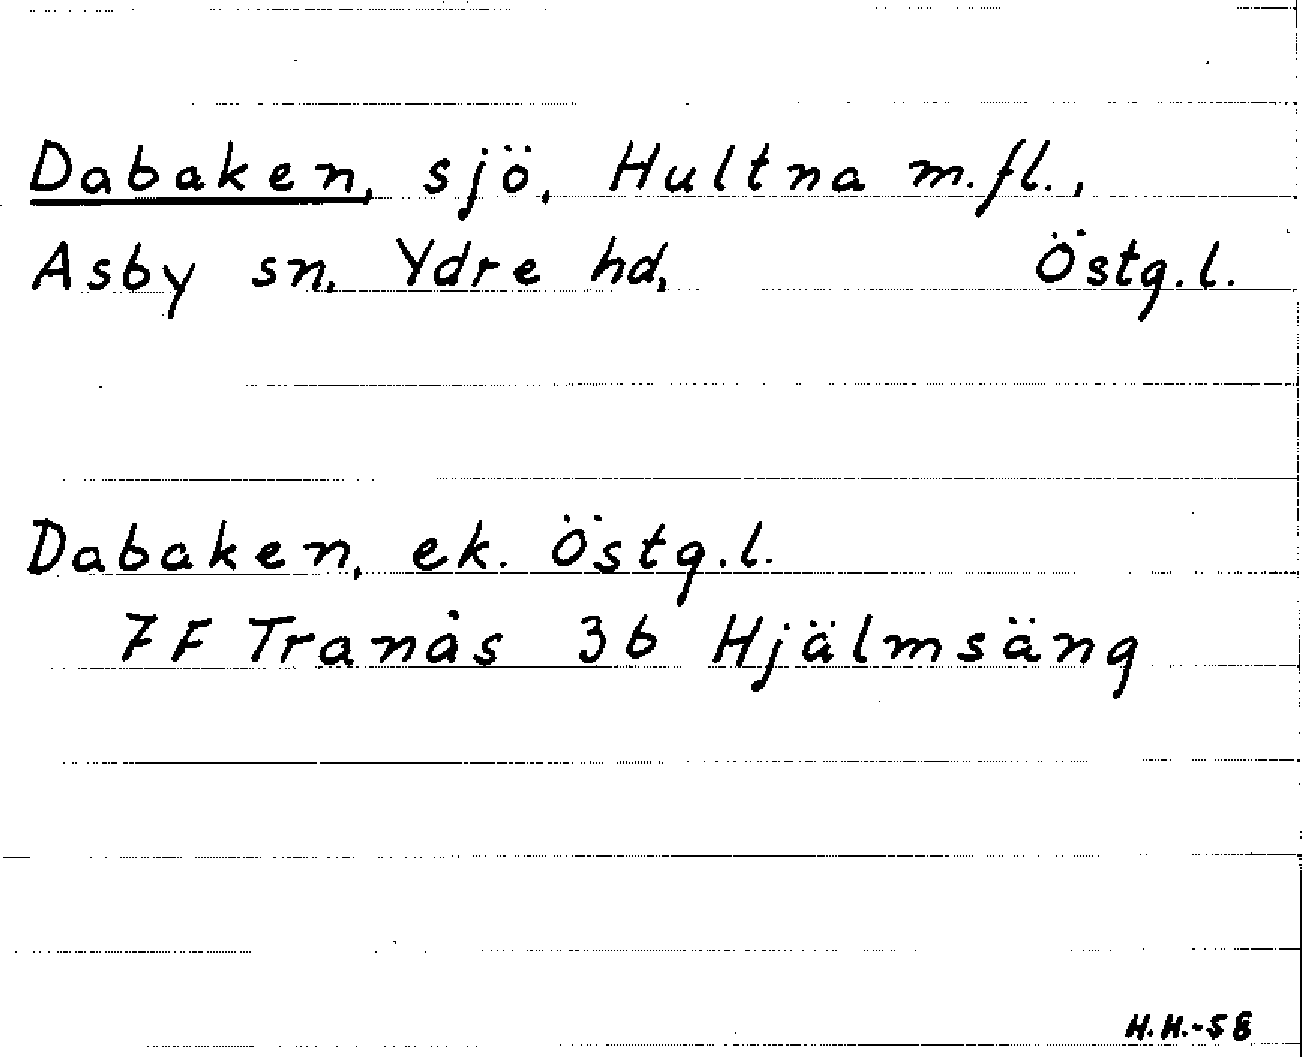 Dabaken, sjö, Hultna m.fl.,
Asby sn, Ydre hd, Östg.l.
Dabaken, ek. Östg.l.
7F Tranås 3b Hjälmsäng
H.H.-58